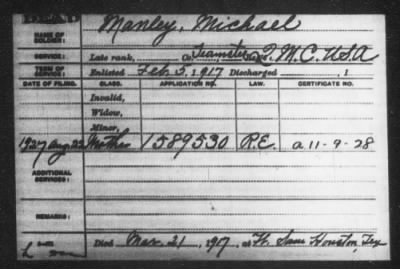 DEAD
NAME OF SOLDIER: Manley, Michael
SERVICE: Late rank, Teamster Co. Q.M.C. U.S.A
TERM OF SERVICE: Enlisted Feb 3, 1917 Discharged , 1
DATE OF FILING. CLASS. APPLICATION NO. LAW. CERTIFICATE NO.
Invalid,
Widow,
Minor,
1927 Aug 22 Mother 1589530 R.E. a 11-9-28
ADDITIONAL SERVICES:
REMARKS:
Died Mar. 21, 1917, at Ft. Sam Houston, Tex